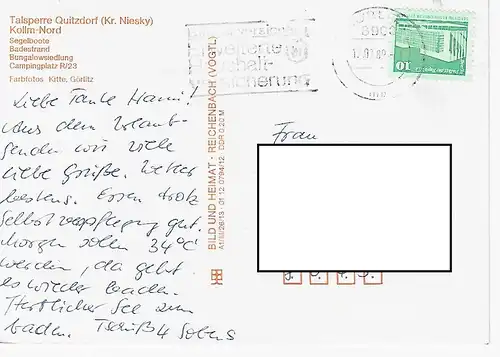 Talsperre Quitzdorf (Kr. Niesky)
Kollm-Nord
Segelboote
Badestrand
Bungalowsiedlung
Campingplatz R/23
Farbfotos Kitte, Görlitz
Liebe Tante Hanni!
Aus dem Urlaub
senden wir viele
liebe Grüße. Wetter
bestens. Essen trotz
Selbstverpflegung gut.
Morgen sollen 34°C
werden, da geht
es wieder baden.
Herrlicher See zum
baden. Tschüß 4
BILD UND HEIMAT · REICHENBACH (VOGTL)
A1/III/26/13 01 12 0794/12 DDR 0,20 M
Erweiterte
Haushalt-
versicherung
890
10
Frau